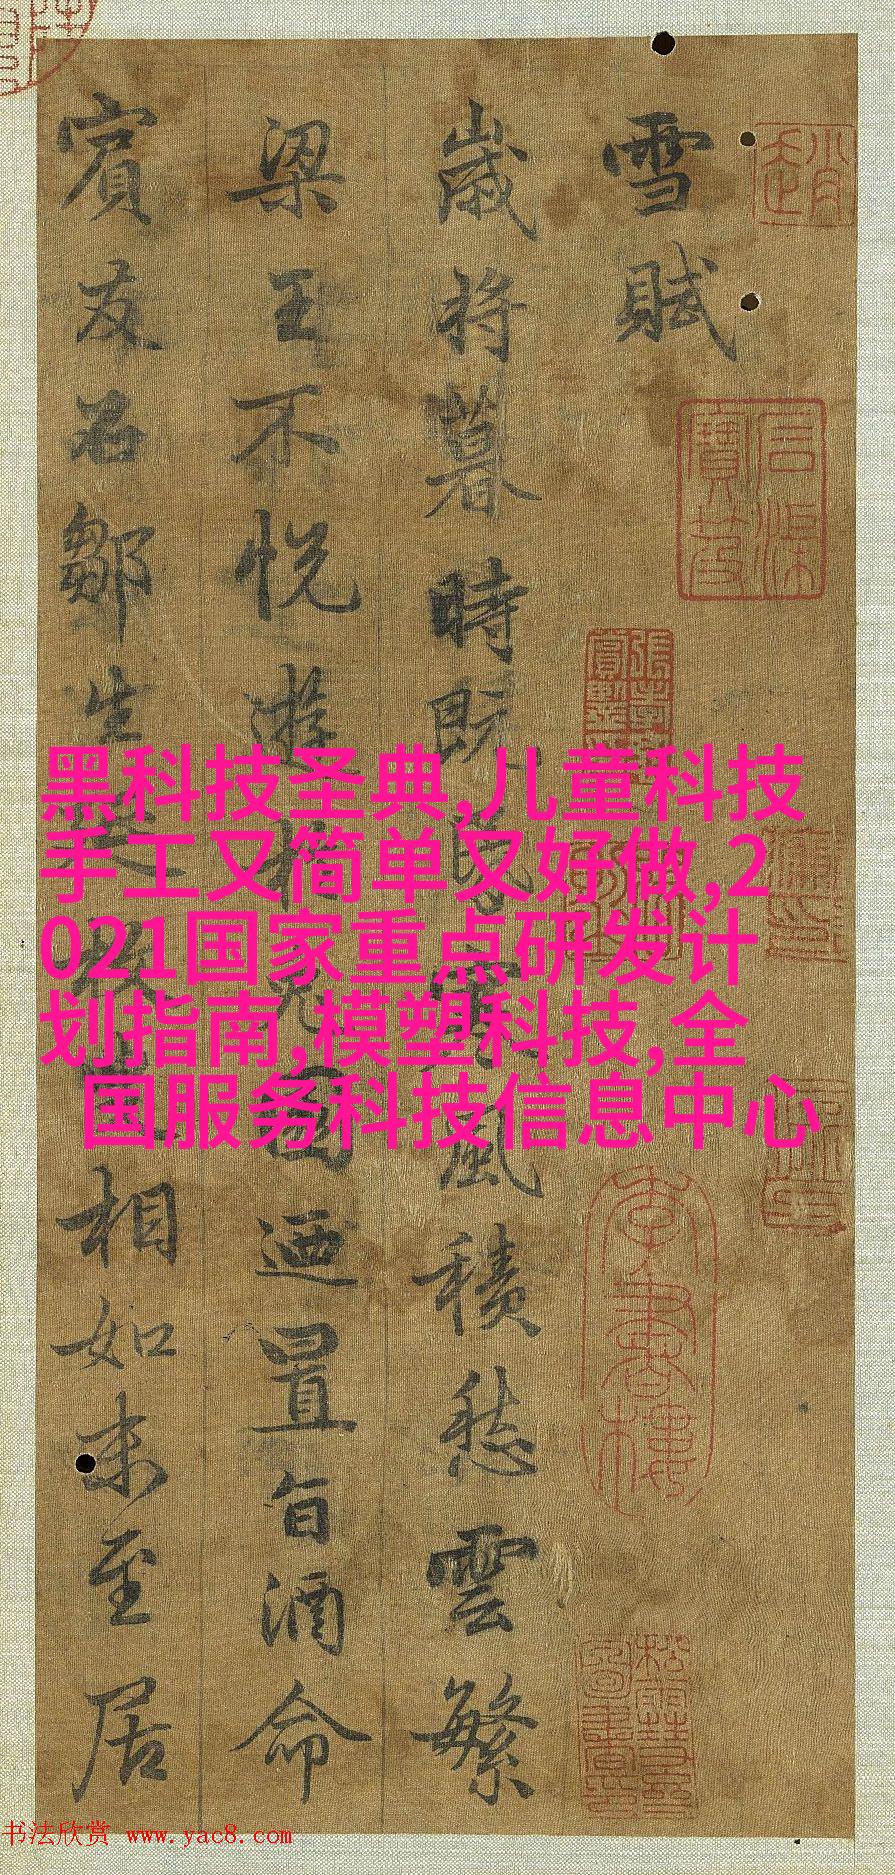 雪賦
歲将暮時既昏風積愁雲繁
梁王不悦遊於園迺置旨酒命
賓友召鄒生相如末至居
黑科技圣典,儿童科技
手工又简单又好做,2
021国家重点研发计
划指南,模塑科技,全
国服务科技信息中心
书法欣赏 www.yac8.com